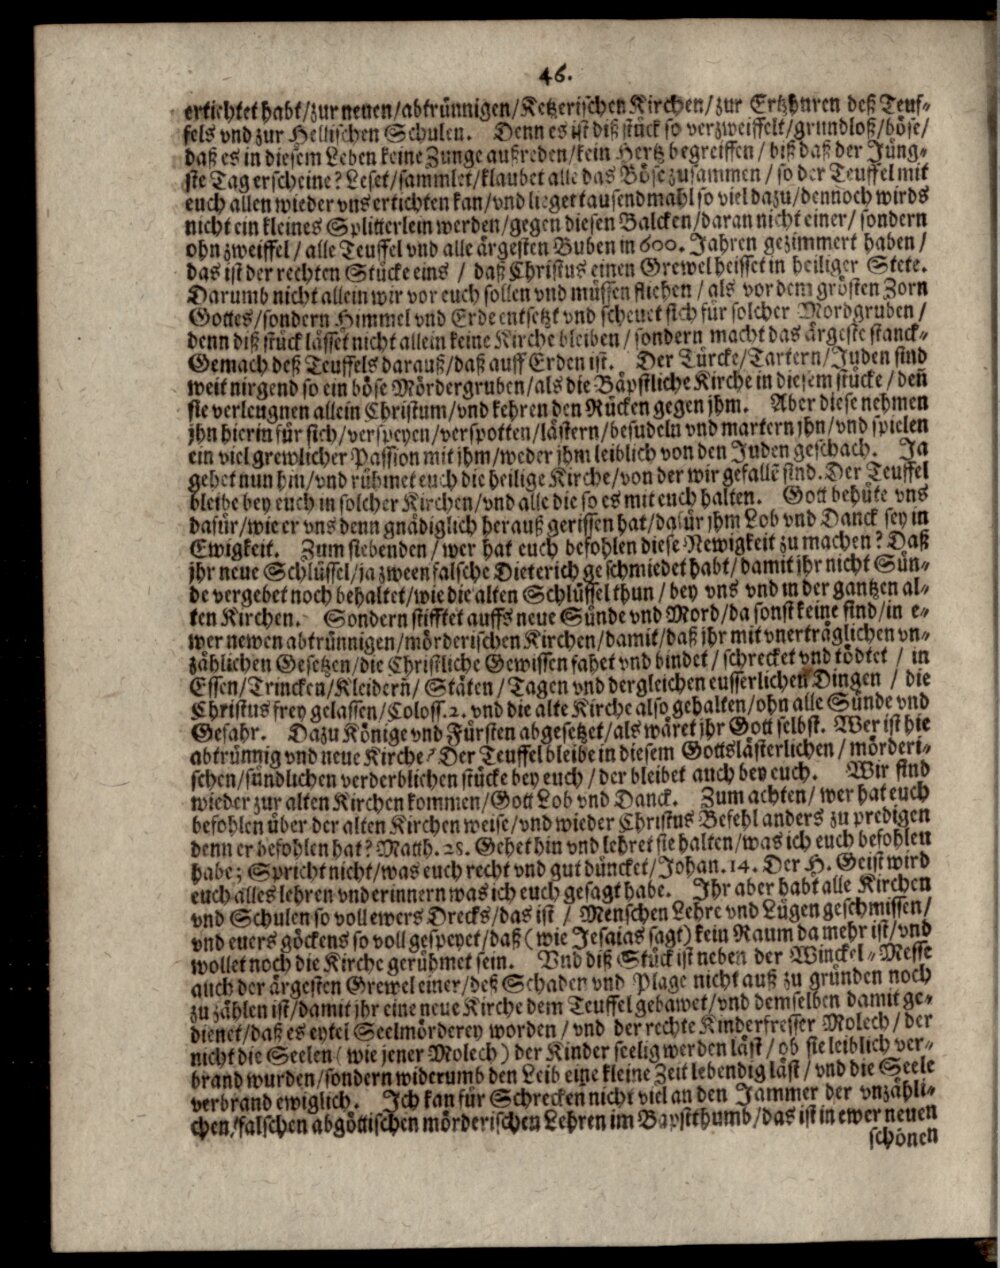 46.
ertichtet habt/zur neuen/abtrünnigen/Ketzerischen Kirchen/zur Ertzhuren deß Teuf-
fels vnd zur Hellischen Schulen. Denn es ist diß stück so verzweiffelt/grundloß/böse/
daß es in diesem Leben keine Zunge außreden/kein Hertz begreiffen/biß daß der Jüng-
ste Tag erscheine? Leset/sammlet/klaubet alle das Böse zusammen/so der Teuffel mit
euch allen wieder vns ertichten kan/vnd lieget tausendmahl so viel dazu/dennoch wirds
nicht ein kleines Splitterlein werden/gegen diesen Balcken/daran nicht einer/sondern
ohn zweiffel/alle Teuffel vnd alle ärgesten Buben in 600. Jahren gezimmert haben/
das ist der rechten Stücke eins/daß Christus einen Grewel heisset in heiliger Stete.
Darumb nicht allein wir vor euch sollen vnd müssen fliehen/als vor dem grösten Zorn
Gottes/sondern Himmel vnd Erde entsetzt vnd scheuet sich für solcher Mordgruben/
denn diß stück lässet nicht allein keine Kirche bleiben/sondern macht das ärgeste stanck-
Gemach deß Teuffels darauß/daß auff Erden ist. Der Türcke/Tartern/Juden sind
weit nirgend so ein böse Mördergruben/als die Bäpstliche Kirche in diesem stücke/deñ
sie verleugnen allein Christum/vnd kehren den Rücken gegen jhm. Aber diese nehmen
jhn hierin für sich/verspeyen/verspotten/lästern/besudeln vnd martern jhn/vnd spielen
ein viel grewlicher Passion mit jhm/weder jhm leiblich von den Juden geschach. Ja
gehet nun hin/vnd rühmet euch die heilige Kirche/von der wir gefallẽ sind. Der Teuffel
bleibe bey euch in solcher Kirchen/vnd alle die so es mit euch halten. Gott behüte vns
dafür/wie er vns denn gnädiglich herauß gerissen hat/dafür jhm Lob vnd Danck sey in
Ewigkeit. Zum siebenden/wer hat euch befohlen diese Newigkeit zu machen? Daß
jhr neue Schlüssel/ja zween falsche Dieterich geschmiedet habt/damit jhr nicht Sün-
de vergebet noch behaltet/wie die alten Schlüssel thun/bey vns vnd in der gantzen al-
ten Kirchen. Sondern stifftet auffs neue Sünde vnd Mord/da sonst keine sind/in e-
wer newen abtrünnigen/mörderischen Kirchen/damit/daß jhr mit vnerträglichen vn-
zählichen Gesetzen/die Christliche Gewissen fahet vnd bindet/schrecket vnd tödtet/in
Essen/Trincken/Kleidern̄/Stäten/Tagen vnd dergleichen eusserlichen Dingen/die
Christus frey gelassen/Coloss. 2. vnd die alte Kirche also gehalten/ohn alle Sünde vnd
Gefahr. Dazu Könige vnd Fürsten abgesetzet/als wäret jhr Gott selbst. Wer ist hie
abtrünnig vnd neue Kirche? Der Teuffel bleibe in diesem Gottslästerlichen/mörderi-
schen/sündlichen verderblichen stücke bey euch/der bleibet auch bey euch. Wir sind
wieder zur alten Kirchen kommen/Gott Lob vnd Danck. Zum achten/wer hat euch
befohlen über der alten Kirchen weise/vnd wieder Christus Befehl anders zu predigen
denn er befohlen hat? Matth. 28. Gehet hin vnd lehret sie halten/was ich euch befohlen
habe; Spricht nicht/was euch recht vnd gut düncket/Johan. 14. Der H. Geist wird
euch alles lehren vnd erinnern was ich euch gesagt habe. Ihr aber habt alle Kirchen
vnd Schulen so voll ewers Drecks/das ist/Menschen Lehre vnd Lügen geschmissen/
vnd euers göckens so voll gespeyet/daß (wie Jesaias sagt) kein Raum da mehr ist/vnd
wollet noch die Kirche gerühmet sein. Vnd diß Stück ist neben der Winckel-Messe
auch der ärgesten Grewel einer/deß Schaden vnd Plage nicht auß zu gründen noch
zu zählen ist/damit jhr eine neue Kirche dem Teuffel gebawet/vnd demselben damit ge-
dienet/daß es eytel Seelmörderey worden/vnd der rechte Kinderfresser Molech/der
nicht die Seelen (wie jener Molech) der Kinder seelig werden läst/ob sie leiblich ver-
brand wurden/sondern widerumb den Leib eine kleine Zeit lebendig läst/vnd die Seele
verbrand ewiglich. Ich kan für Schrecken nicht viel an den Jammer der vnzähli-
chen/falschen abgöttischen mörderischen Lehren im Bapstthumb/das ist in ewer neuen
schönen